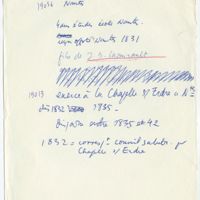 19014 Nantes
4 ans d'études école Nantes
reçu off. Nantes 1831
fils de J. B.
19013 exerce à La Chapelle s/ Erdre
dès 1832 1835
entre 1835 et 42
1832 = corresp. conseil salub. pr
Chapelle s/ Erdre